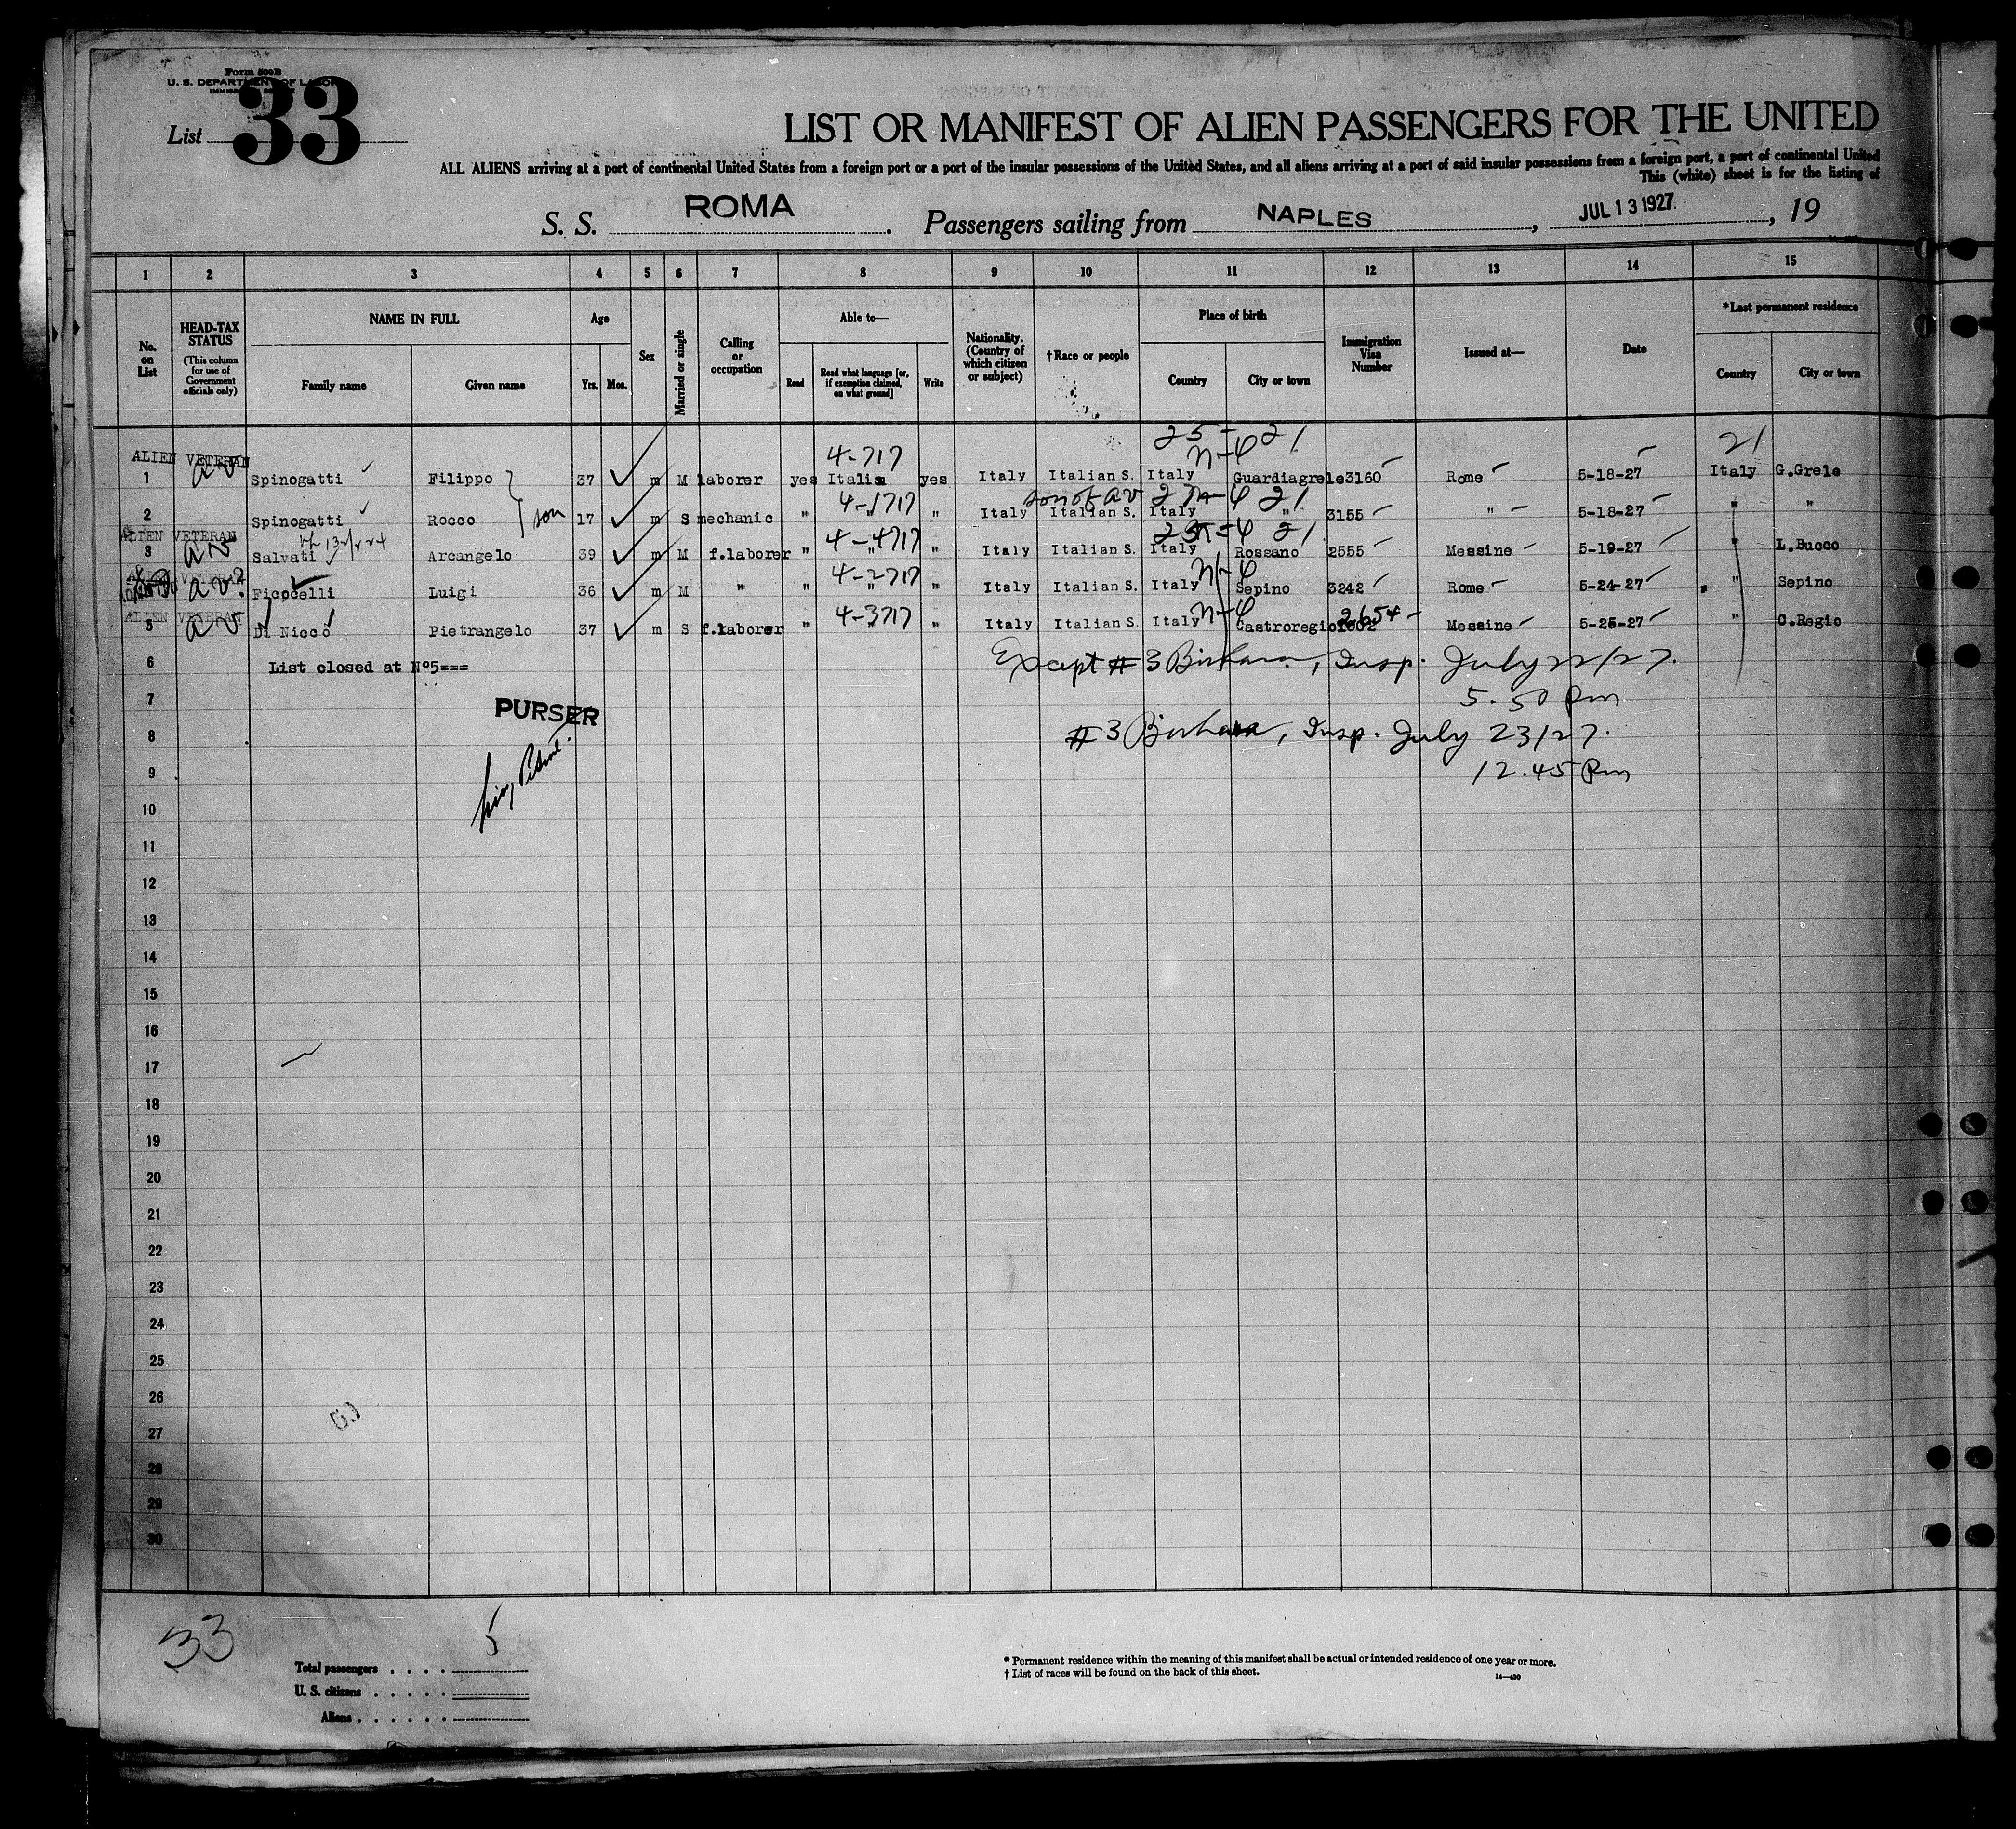 Form 500B
U. S. DEPARTMENT OF LABOR
List 33
LIST OR MANIFEST OF ALIEN PASSENGERS FOR THE UNITED
ALL ALIENS arriving at a port of continental United States from a foreign port or a port of the insular possessions of the United States, and all aliens arriving at a port of said insular possessions from a foreign port, a port of continental United
This (white) sheet is for the listing of
S. S. ROMA. Passengers sailing from NAPLES, JUL 13 1927, 19
1 2 3 4 5 6 7 8 9 10 11 12 13 14 15
No. on List
HEAD-TAX STATUS (This column for use of Government officials only)
NAME IN FULL
Family name Given name
Age
Yrs. Mos.
Sex
Married or single
Calling or occupation
Able to—
Read Read what language [or, if exemption claimed, on what ground] Write
Nationality. (Country of which citizen or subject)
†Race or people
Place of birth
Country City or town
Immigration Visa Number
Issued at—
Date
*Last permanent residence
Country City or town
25 - 21 21
ALIEN VETERAN 4-717 n-4
1 av Spinogatti Filippo 37 m M laborer yes Italia yes Italy Italian S. Italy Guardiagrele 3160 Rome 5-18-27 Italy G.Grele
4-1717 son of av 21
2 Spinogatti Rocco son 17 m S mechanic " " Italy Italian S. Italy " 3155 " 5-18-27 " "
ALIEN VETERAN 4-4717 21
3 av Salvati Arcangelo 39 m M f.laborer " " " Italy Italian S. Italy Rossano 2555 Messine 5-19-27 " L.Bucco
4-2717 n-4
av? Ficocelli Luigi 36 m M " " " " Italy Italian S. Italy Sepino 3242 Rome 5-24-27 " Sepino
ALIEN VETERAN 4-3717 n-4 2654
5 av Di Nicco Pietrangelo 37 m S f.laborer " " " Italy Italian S. Italy Castroregio Messine 5-25-27 " C.Regio
6 List closed at Nº5=== Except #3 Insp. July 22/27.
7 5.50 Pm
PURSER
8 #3 Insp. July 23/27.
9 12.45 Pm
10
11
12
13
14
15
16
17
18
19
20
21
22
23
24
25
26
27
28
29
30
33
5
Total passengers
U. S. citizens
Aliens
* Permanent residence within the meaning of this manifest shall be actual or intended residence of one year or more.
† List of races will be found on the back of this sheet.
14—430